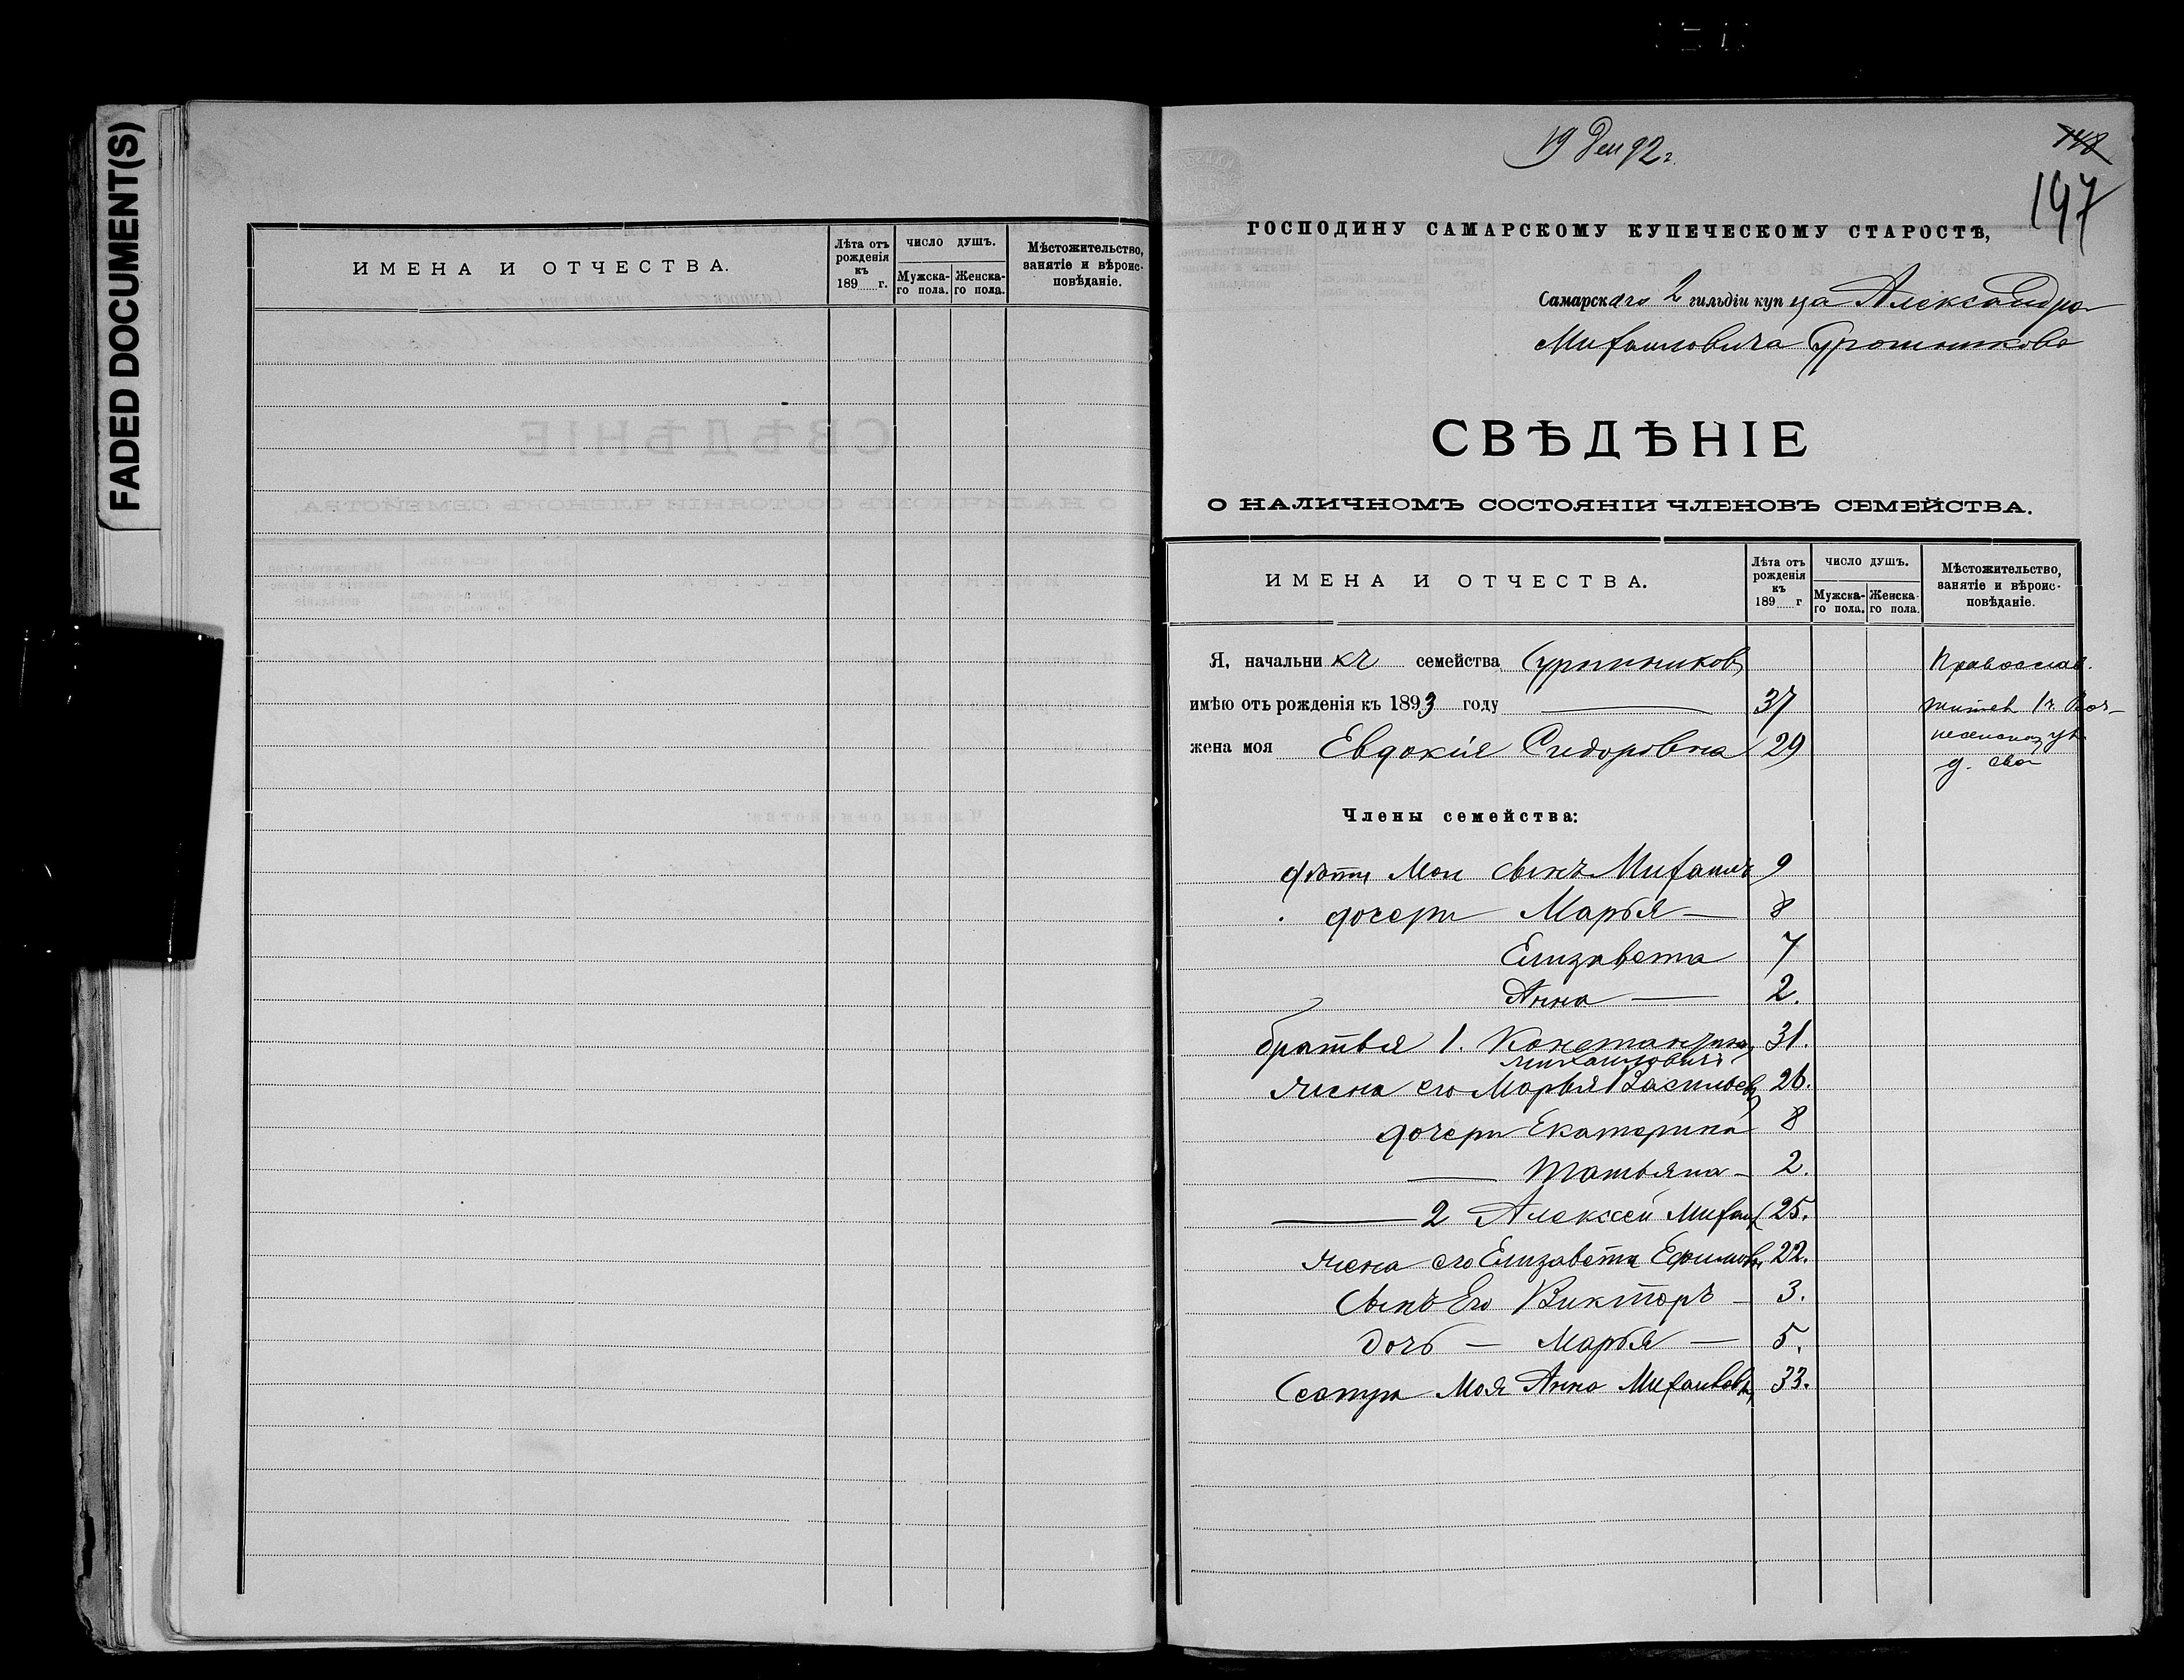 FADED DOCUMENT(S)
ИМЕНА И ОТЧЕСТВА.
Лѣта отъ рожденія къ 189 г.
ЧИСЛО ДУШЪ.
Мужска-го пола.
Женска-го пола.
Мѣстожительство, занятіе и вѣроис-повѣданіе.
19 Дек 92 г.
148
197
ГОСПОДИНУ САМАРСКОМУ КУПЕЧЕСКОМУ СТАРОСТѢ,
Самарскаго 2 гильдіи купца Александра
Михаиловича
СВѢДѢНІЕ
О НАЛИЧНОМЪ СОСТОЯНІИ ЧЛЕНОВЪ СЕМЕЙСТВА.
ИМЕНА И ОТЧЕСТВА.
Лѣта отъ рожденія къ 189 г
ЧИСЛО ДУШЪ.
Мужска-го пола.
Женска-го пола.
Мѣстожительство, занятіе и вѣроис-повѣданіе.
Я, начальникъ семейства Православ.
имѣю отъ рожденія къ 1893 году 37 жител 1 ч. Воз-
жена моя Евдокія Сидоровна 29 несенской ул.
д. сво
Члены семейства:
дѣти Мои сынъ Михаилъ 9
дочери Марья — 8
Елизавета 7
Анна — 2.
братья 1. Константинъ 31.
Михаиловичъ
жена его Марья Васильев 26.
дочери Екатерина 8
— Татьяна — 2.
— 2 Алексей Михаил 25.
жена его Елизавета Ефимовн 22.
Сынъ Его Викторъ — 3.
Дочь — Марья — 5.
Сестра Моя Анна Михаиловн 33.